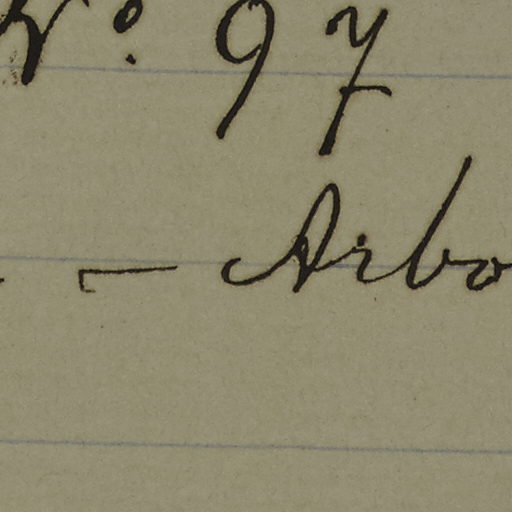 Nº. 97
— Arbo